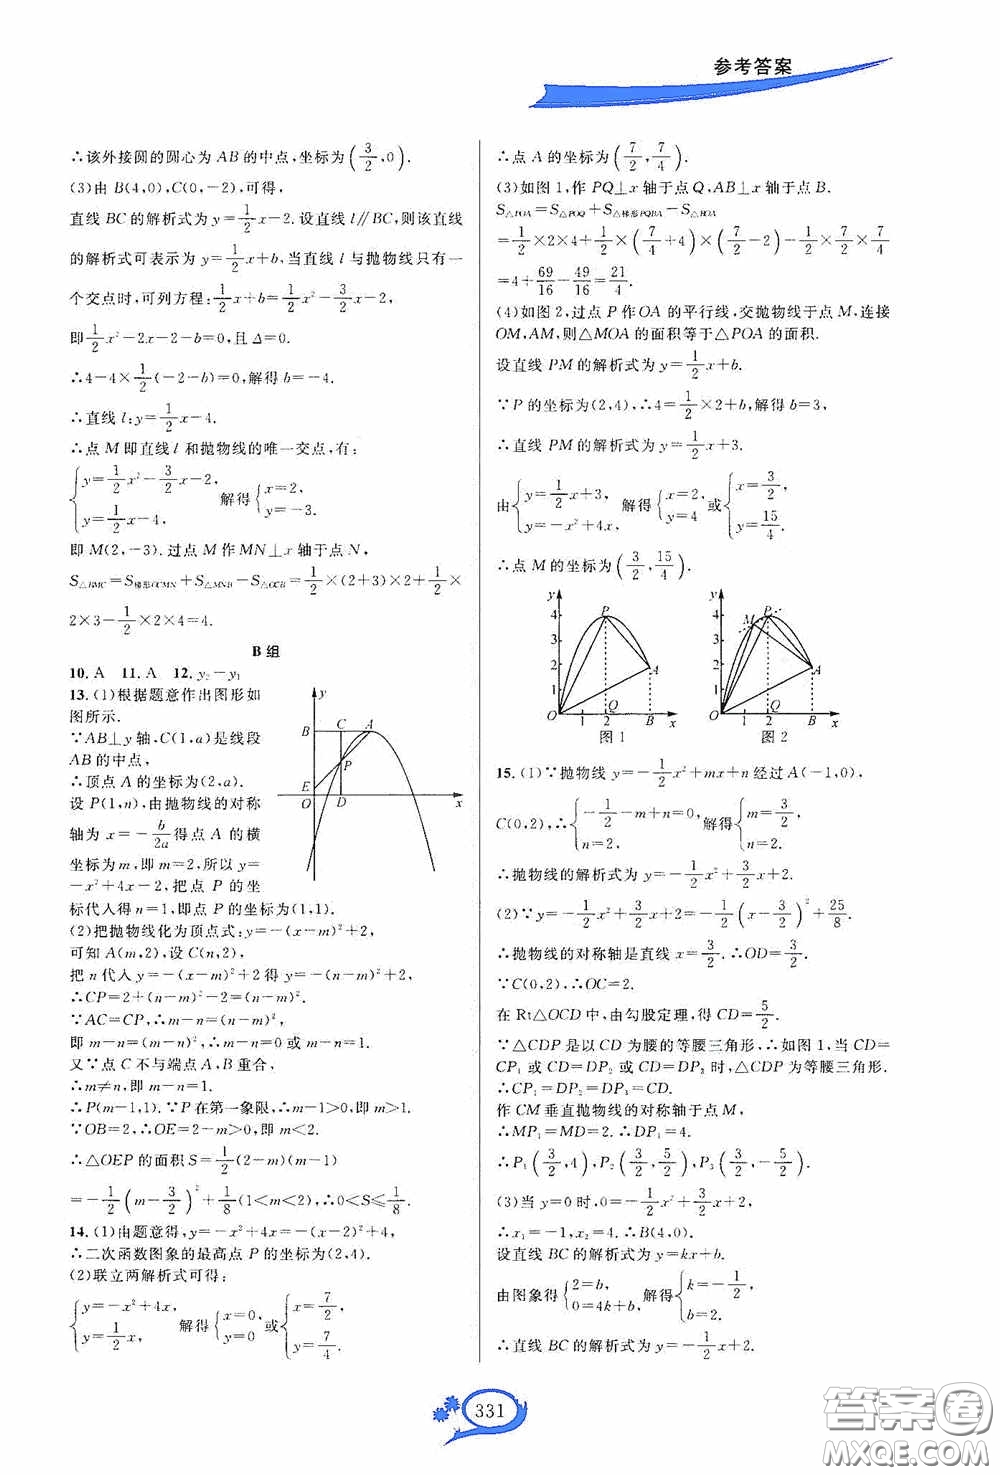 参考答案
∴该外接圆的圆心为 AB 的中点,坐标为(3/2,0).
(3)由 B(4,0),C(0,-2),可得,
直线 BC 的解析式为 y=1/2x-2. 设直线 l∥BC,则该直线
的解析式可表示为 y=1/2x+b,当直线 l 与抛物线只有一
个交点时,可列方程:1/2x+b=1/2x²-3/2x-2,
即1/2x²-2x-2-b=0,且 Δ=0.
∴4-4×1/2(-2-b)=0,解得 b=-4.
∴直线 l:y=1/2x-4.
∴点 M 即直线 l 和抛物线的唯一交点,有:
{y=1/2x²-3/2x-2, y=1/2x-4, 解得{x=2, y=-3.
即 M(2,-3). 过点 M 作 MN⊥x 轴于点 N,
S△BMC=S梯形OCMN+S△MNB-S△OCB=1/2×(2+3)×2+1/2×
2×3-1/2×2×4=4.
B 组
10. A 11. A 12. y₂-y₁
13. (1)根据题意作出图形如
图所示.
∵AB⊥y 轴,C(1,a)是线段
AB 的中点,
∴顶点 A 的坐标为(2,a).
设 P(1,n),由抛物线的对称
轴为 x=-b/2a得点 A 的横
坐标为 m,即 m=2,所以 y=
-x²+4x-2,把点 P 的坐
标代入得 n=1,即点 P 的坐标为(1,1).
(2)把抛物线化为顶点式:y=-(x-m)²+2,
可知 A(m,2),设 C(n,2),
把 n 代入 y=-(x-m)²+2 得 y=-(n-m)²+2,
∴CP=2+(n-m)²-2=(n-m)²,
∵AC=CP,∴m-n=(n-m)²,
即 m-n=(m-n)²,∴m-n=0 或 m-n=1.
又∵点 C 不与端点 A,B 重合,
∴m≠n,即 m-n=1.
∴P(m-1,1). ∵P 在第一象限,∴m-1>0,即 m>1.
∵OB=2,∴OE=2-m>0,即 m<2.
∴△OEP 的面积 S=1/2(2-m)(m-1)
=-1/2(m-3/2)²+1/8(1<m<2),∴0<S≤1/8.
14. (1)由题意得,y=-x²+4x=-(x-2)²+4,
∴二次函数图象的最高点 P 的坐标为(2,4).
(2)联立两解析式可得:
{y=-x²+4x, y=1/2x, 解得{x=0, y=0 或{x=7/2, y=7/4.
y
B C A
E P
O D x
∴点 A 的坐标为(7/2,7/4).
(3)如图 1,作 PQ⊥x 轴于点 Q,AB⊥x 轴于点 B.
S△POA=S△POQ+S△梯形PQBA-S△BOA
=1/2×2×4+1/2×(7/4+4)×(7/2-2)-1/2×7/2×7/4
=4+69/16-49/16=21/4.
(4)如图 2,过点 P 作 OA 的平行线,交抛物线于点 M,连接
OM,AM,则△MOA 的面积等于△POA 的面积.
设直线 PM 的解析式为 y=1/2x+b.
∵P 的坐标为(2,4),∴4=1/2×2+b,解得 b=3,
∴直线 PM 的解析式为 y=1/2x+3.
由{y=1/2x+3, y=-x²+4x, 解得{x=2, y=4 或{x=3/2, y=15/4.
∴点 M 的坐标为(3/2,15/4).
y 4 3 2 1 O 1 2 x P A Q B
图 1
y 4 3 2 1 O 1 2 x M P A Q B
图 2
15. (1)∵抛物线 y=-1/2x²+mx+n 经过 A(-1,0),
C(0,2),∴{-1/2-m+n=0, n=2. 解得{m=3/2, n=2.
∴抛物线的解析式为 y=-1/2x²+3/2x+2.
(2)∵y=-1/2x²+3/2x+2=-1/2(x-3/2)²+25/8.
∴抛物线的对称轴是直线 x=3/2. ∴OD=3/2.
∵C(0,2),∴OC=2.
在 Rt△OCD 中,由勾股定理,得 CD=5/2.
∵△CDP 是以 CD 为腰的等腰三角形,∴如图 1,当 CD=
CP₁ 或 CD=DP₂ 或 CD=DP₃ 时,△CDP 为等腰三角形.
∴CP₁=DP₂=DP₃=CD.
作 CM 垂直抛物线的对称轴于点 M,
∴MP₁=MD=2. ∴DP₁=4.
∴P₁(3/2,4),P₂(3/2,5/2),P₃(3/2,-5/2).
(3)当 y=0 时,0=-1/2x²+3/2x+2,
∴x₁=-1,x₂=4. ∴B(4,0).
设直线 BC 的解析式为 y=kx+b.
由图象得{2=b, 0=4k+b, 解得{k=-1/2, b=2.
∴直线 BC 的解析式为 y=-1/2x+2.
331
答案圈
MXQE.COM